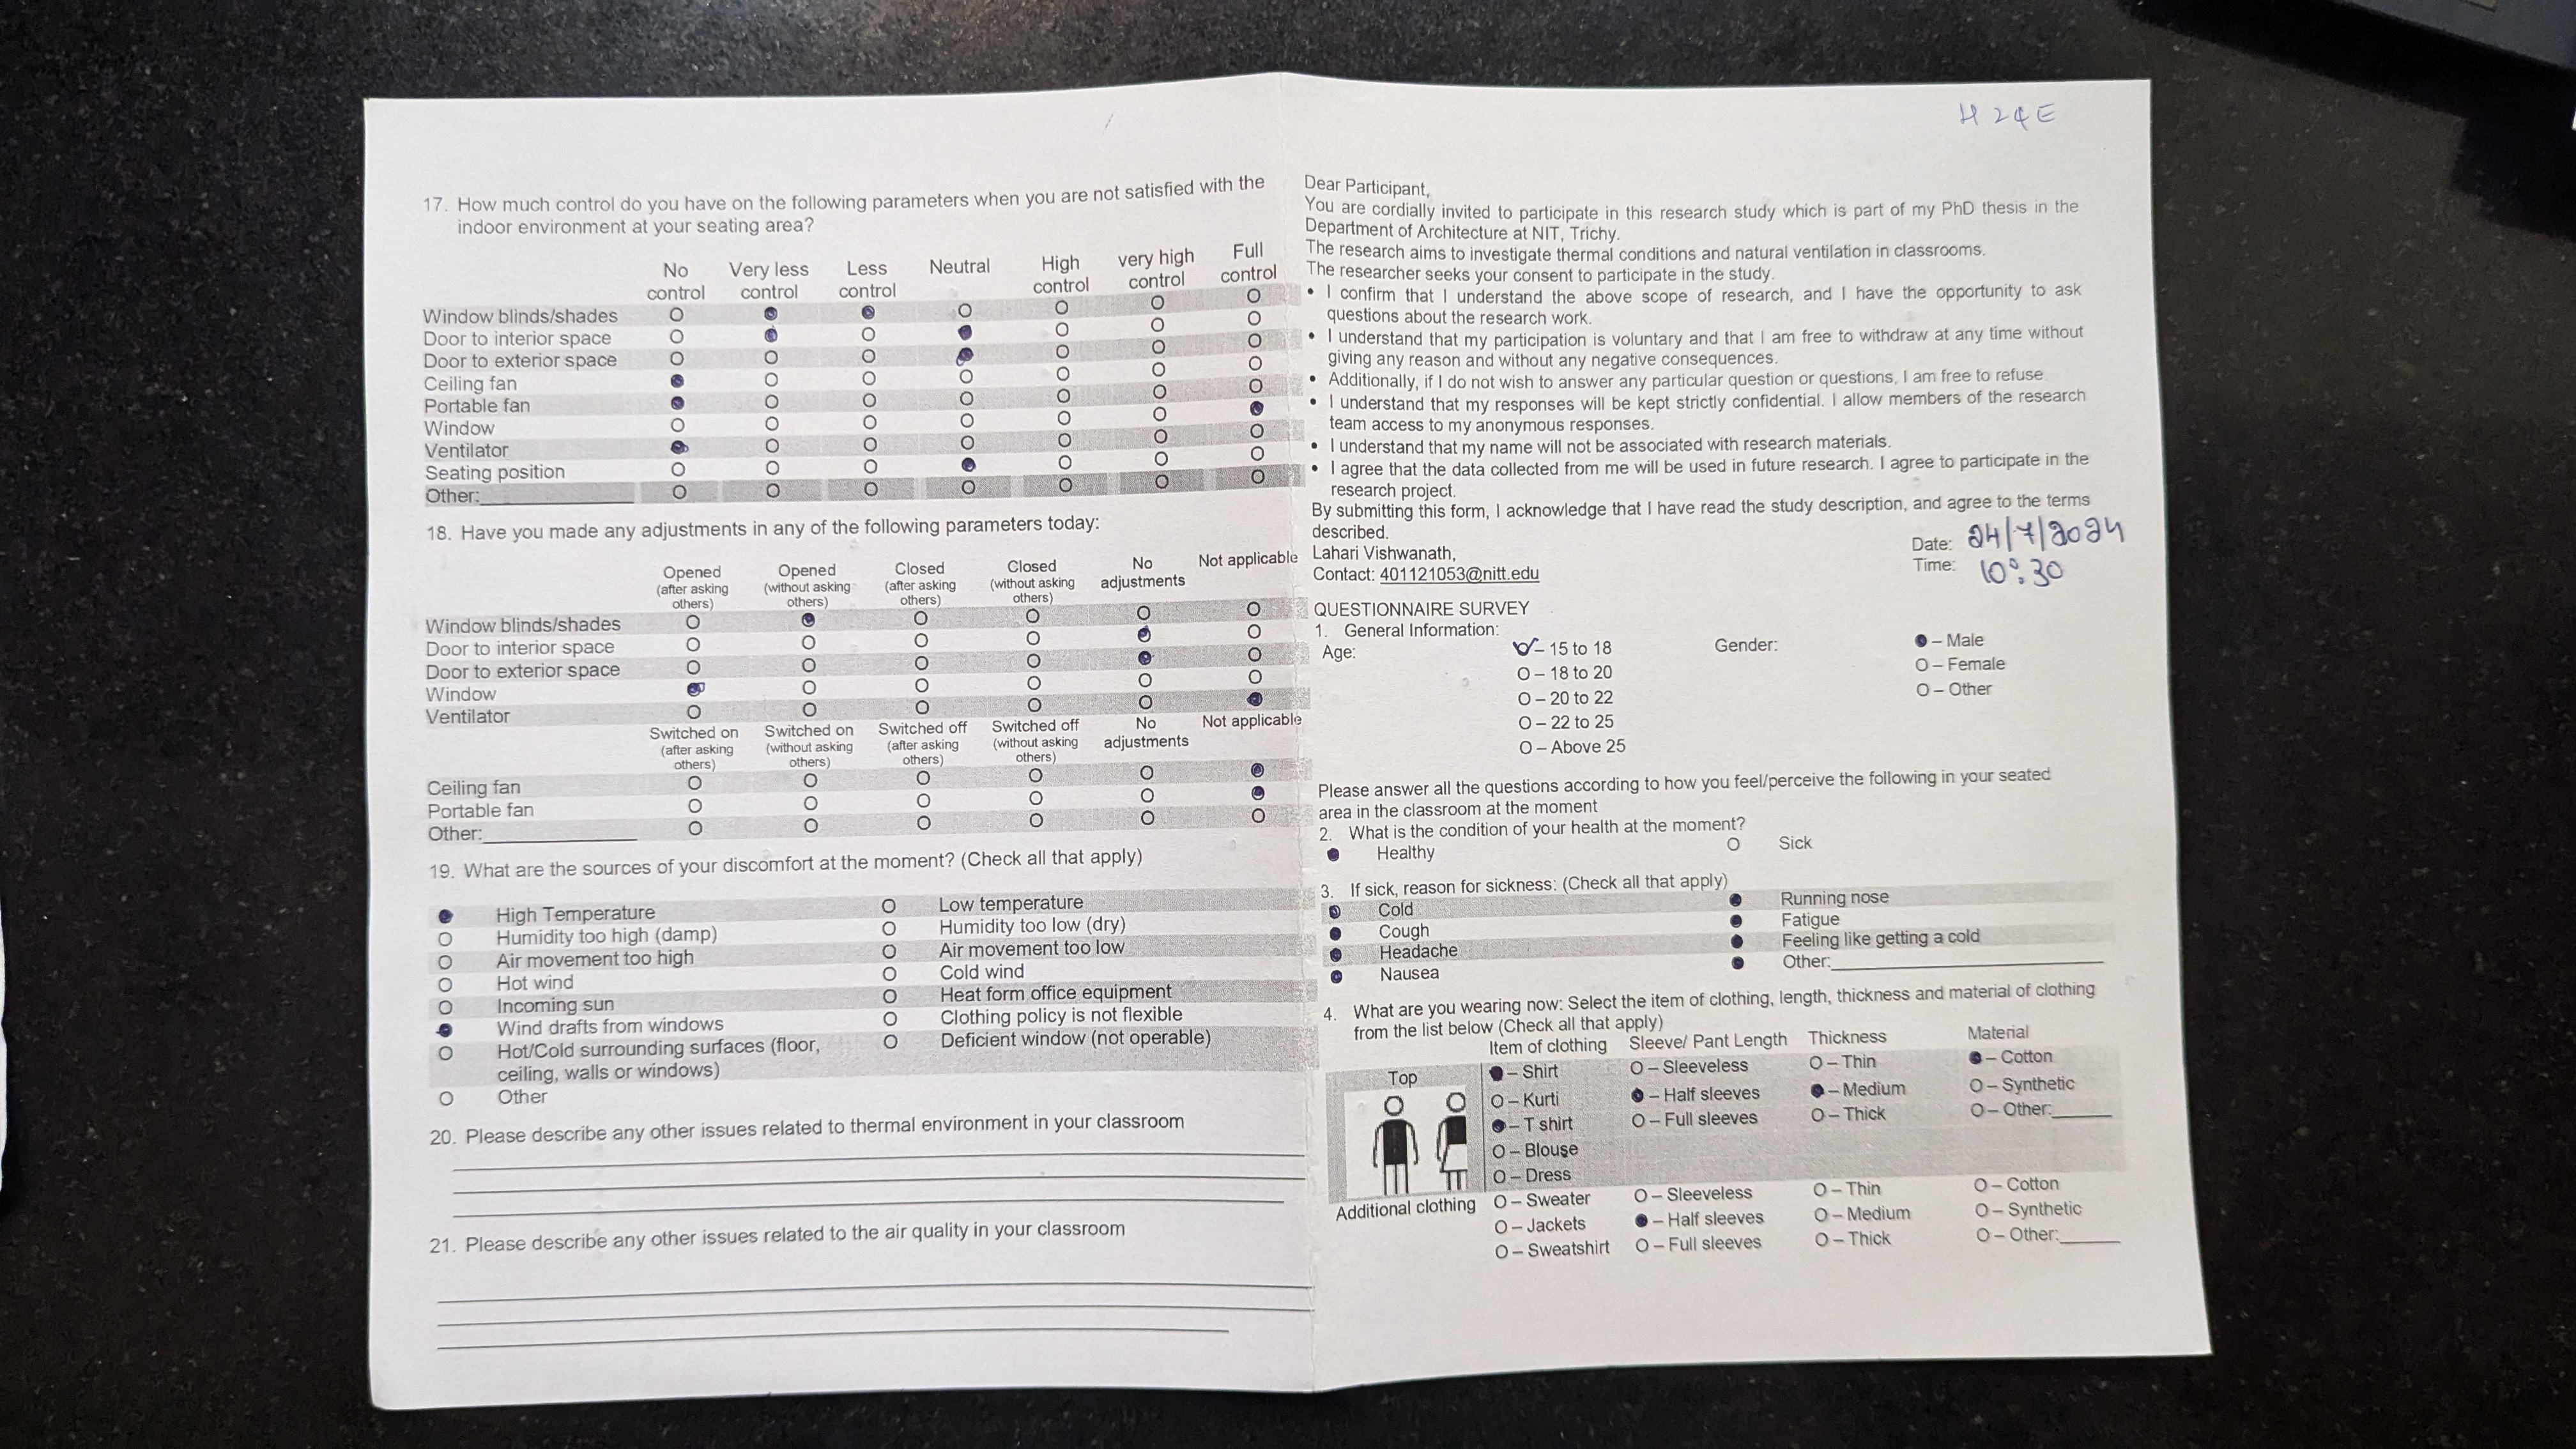 17. How much control do you have on the following parameters when you are not satisfied with the
indoor environment at your seating area?
No control Very less control Less control Neutral High control very high control Full control
Window blinds/shades
Door to interior space
Door to exterior space
Ceiling fan
Portable fan
Window
Ventilator
Seating position
Other:
18. Have you made any adjustments in any of the following parameters today:
Opened (after asking others) Opened (without asking others) Closed (after asking others) Closed (without asking others) No adjustments Not applicable
Window blinds/shades
Door to interior space
Door to exterior space
Window
Ventilator
Switched on (after asking others) Switched on (without asking others) Switched off (after asking others) Switched off (without asking others) No adjustments Not applicable
Ceiling fan
Portable fan
Other:
19. What are the sources of your discomfort at the moment? (Check all that apply)
High Temperature Low temperature
Humidity too high (damp) Humidity too low (dry)
Air movement too high Air movement too low
Hot wind Cold wind
Incoming sun Heat form office equipment
Wind drafts from windows Clothing policy is not flexible
Hot/Cold surrounding surfaces (floor, Deficient window (not operable)
ceiling, walls or windows)
Other
20. Please describe any other issues related to thermal environment in your classroom
21. Please describe any other issues related to the air quality in your classroom
Dear Participant,
You are cordially invited to participate in this research study which is part of my PhD thesis in the
Department of Architecture at NIT, Trichy.
The research aims to investigate thermal conditions and natural ventilation in classrooms.
The researcher seeks your consent to participate in the study.
• I confirm that I understand the above scope of research, and I have the opportunity to ask
questions about the research work.
• I understand that my participation is voluntary and that I am free to withdraw at any time without
giving any reason and without any negative consequences.
• Additionally, if I do not wish to answer any particular question or questions, I am free to refuse.
• I understand that my responses will be kept strictly confidential. I allow members of the research
team access to my anonymous responses.
• I understand that my name will not be associated with research materials.
• I agree that the data collected from me will be used in future research. I agree to participate in the
research project.
By submitting this form, I acknowledge that I have read the study description, and agree to the terms
described.
Lahari Vishwanath,
Contact: 401121053@nitt.edu
Date: 24/7/2024
Time: 10:30
QUESTIONNAIRE SURVEY
1. General Information:
Age: – 15 to 18 Gender: – Male
O – 18 to 20 O – Female
O – 20 to 22 O – Other
O – 22 to 25
O – Above 25
Please answer all the questions according to how you feel/perceive the following in your seated
area in the classroom at the moment
2. What is the condition of your health at the moment?
Healthy Sick
3. If sick, reason for sickness: (Check all that apply)
Cold Running nose
Cough Fatigue
Headache Feeling like getting a cold
Nausea Other:
4. What are you wearing now: Select the item of clothing, length, thickness and material of clothing
from the list below (Check all that apply)
Item of clothing Sleeve/ Pant Length Thickness Material
Top – Shirt O – Sleeveless O – Thin – Cotton
O – Kurti – Half sleeves – Medium O – Synthetic
– T shirt O – Full sleeves O – Thick O – Other:
O – Blouse
O – Dress
Additional clothing O – Sweater O – Sleeveless O – Thin O – Cotton
O – Jackets – Half sleeves O – Medium O – Synthetic
O – Sweatshirt O – Full sleeves O – Thick O – Other: